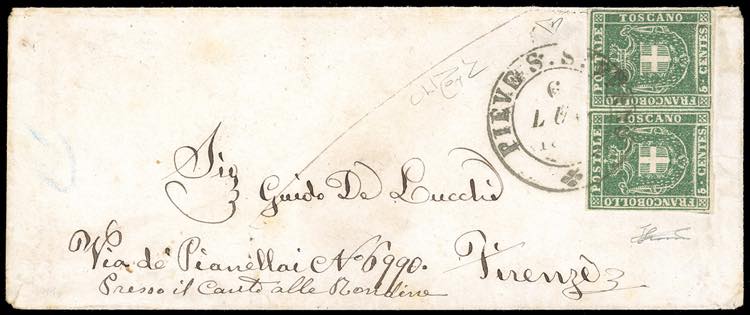 FRANCOBOLLO
TOSCANO
POSTALE
5 CENTES
FRANCOBOLLO
TOSCANO
POSTALE
5 CENTES
PIEVE S. S.
6
LU
Sig
Guido De Lucchi
Via de' Pianellai No 6990. Firenze
Presso il Canto alle Rondine